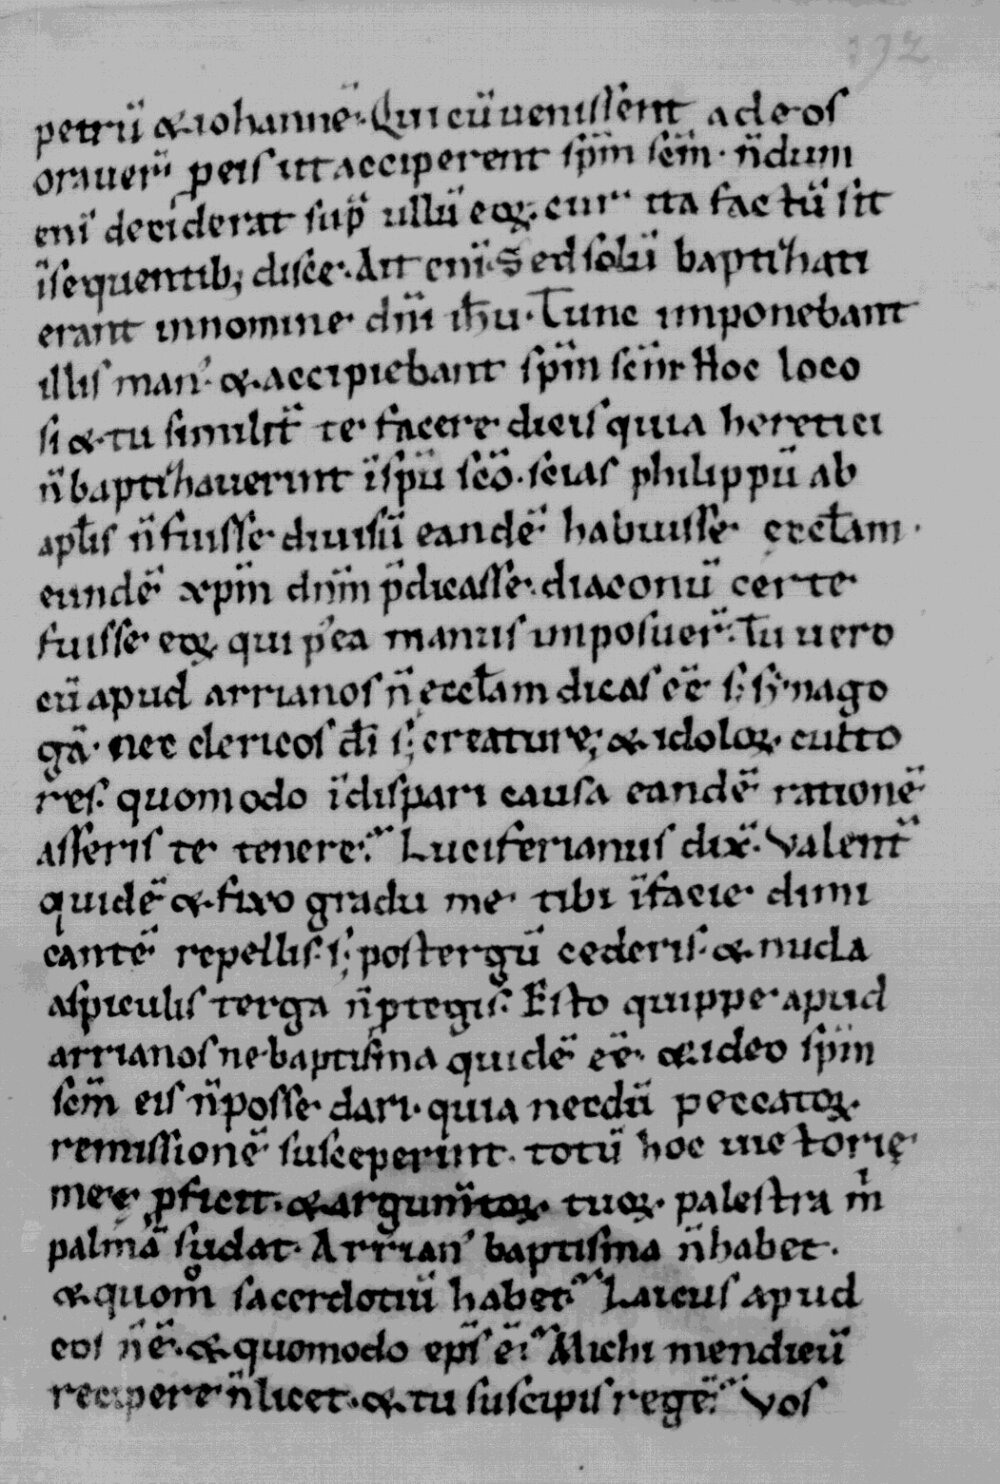 192
petrū & iohannē. Qui cū uenissent ad eos
orauer̄ ꝑ eis ut acciperent sp̄m sc̄m. n̄dum
enī deciderat sup̄ ullū eoꝝ. cur ita factū sit
īsequentib; disce. Ait enī. Sed solū baptizati
erant in nomine dn̄i ih̄u. Tunc imponebant
illis man⁹. & accipiebant sp̄m sc̄m. Hoc loco
si & tu similit̄ te facere dicis quia heretici
n̄ baptizauerunt ī spū scō. scias philippū ab
apl̄is n̄ fuisse diuisū eandē habuisse eccl̄am.
eundē xp̄m dn̄m p̄dicasse. diaconū certe
fuisse eoꝝ qui p⁹ea manus imposuer̄. Tu uero
cū apud arrianos n̄ eccl̄am dicas eē s; synago
gā. nec clericos dī s; creaturę; & idoloꝝ culto
res. quomodo ī dispari causa eandē rationē
asseris te tenere? Luciferianus dix̄. Valent̄
quidē & fixo gradu me tibi ī facie dimi
cantē repellis. s; post ergū cederis. & nuda
a spiculis terga n̄ ꝓtegis. Esto quippe apud
arrianos ne baptisma quidē eē. & ideo sp̄m
sc̄m eis n̄ posse dari. quia necdū peccatoꝝ
remissionē susceperunt. totū hoc uictorię
meę ꝓficit. & argum̄toꝝ tuoꝝ palestra m̄
palmā sudat. Arrian⁹ baptisma n̄ habet.
& quom̊ sacerdotiū habet? Laicus apud
eos n̄ ē. & quomodo ep̄s ē? Michi mendicū
recipere n̄ licet. & tu suscipis regē? Vos